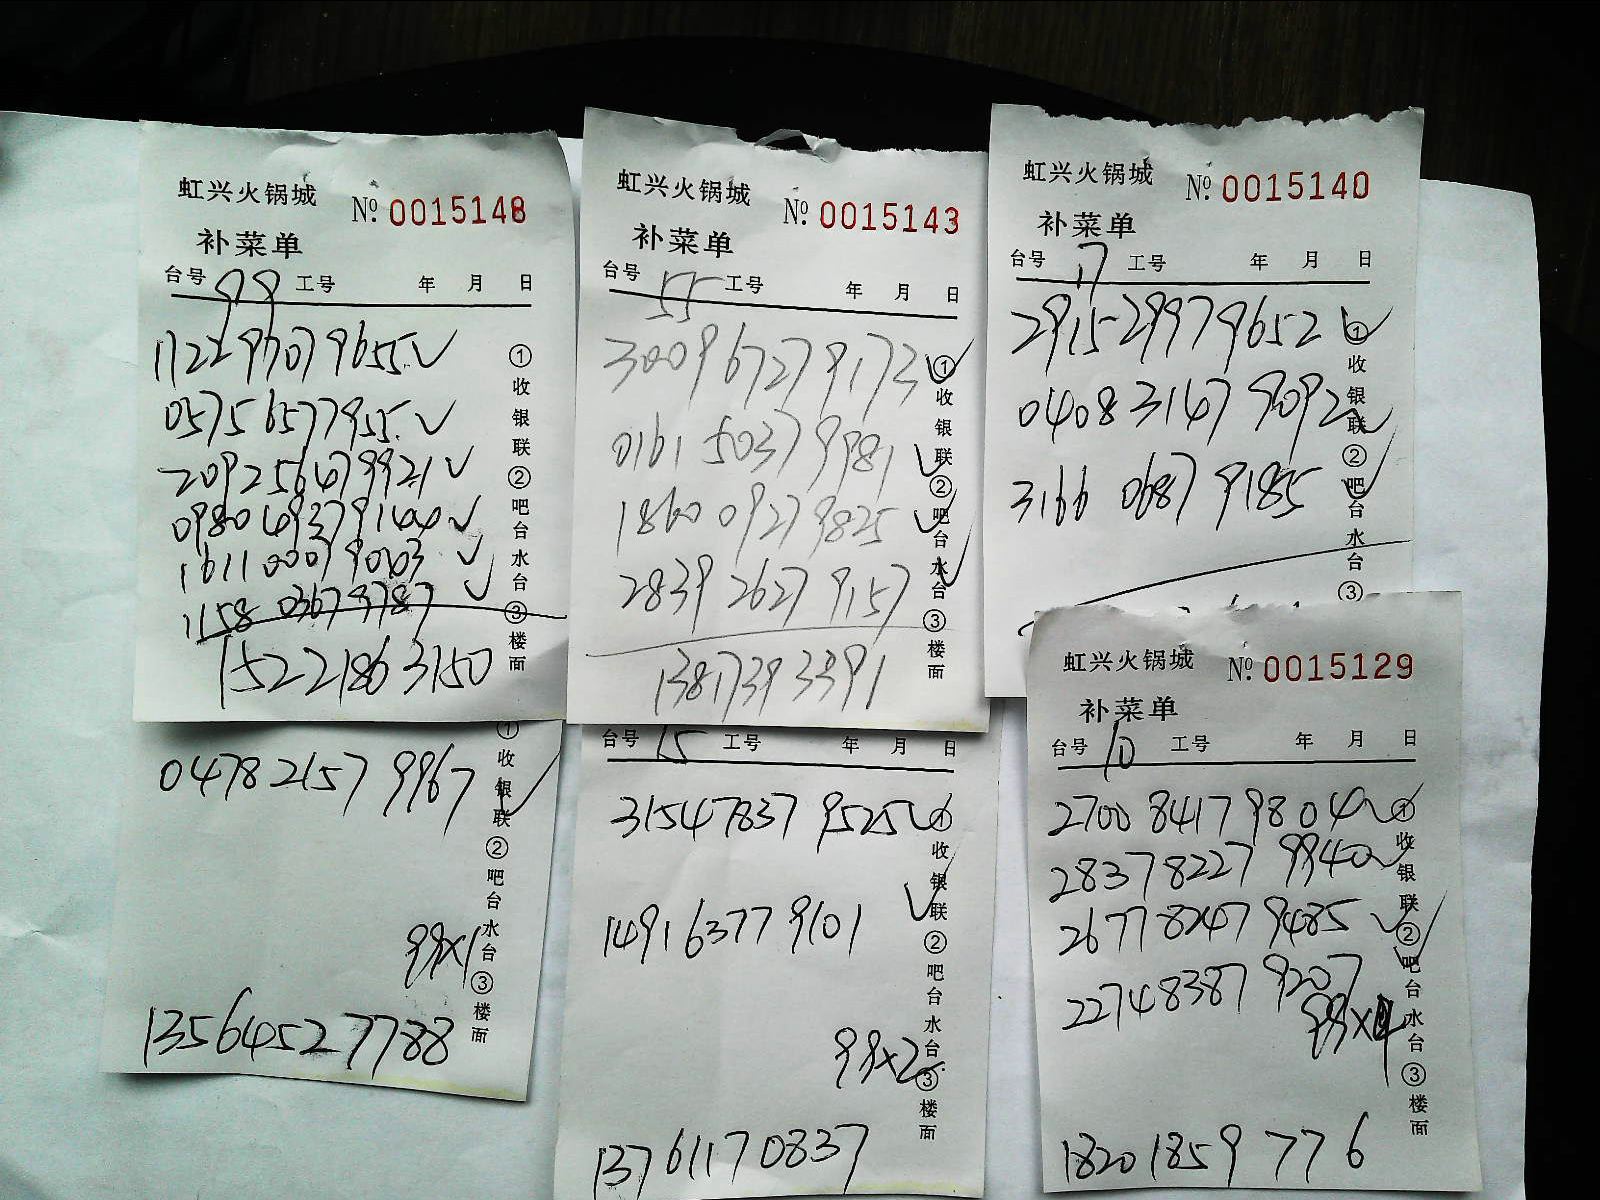 虹兴火锅城 No. 0015148
补菜单
台号 99 工号 年 月 日
0575 6577 955
2092 5647 9921
0980 4937 9144
1611 0007 9003
1158 0367 9787
15221863150
①收银联②吧台水台③楼面
虹兴火锅城 No. 0015143
补菜单
台号 55 工号 年 月 日
3009 6727 9173
0161 5037 9981
1860 0927 9825
2839 2627 9157
13817393391
①收银联②吧台水台③楼面
虹兴火锅城 No. 0015140
补菜单
台号 17 工号 年 月 日
2915 2997 9652
0408 3147 9092
3166 0687 9185
①收银联②吧台水台③
0478 2157 9967
99×1
13564527788
①收银联②吧台水台③楼面
台号 15 工号 年 月 日
3154 7837 9525
1491 6377 9101
99×2
13761170837
①收银联②吧台水台③楼面
虹兴火锅城 No. 0015129
补菜单
台号 10 工号 年 月 日
2700 8417 9804
2837 8227 9940
2677 8247 9485
2274 8387 9207
99×4
18201859776
①收银联②吧台水台③楼面